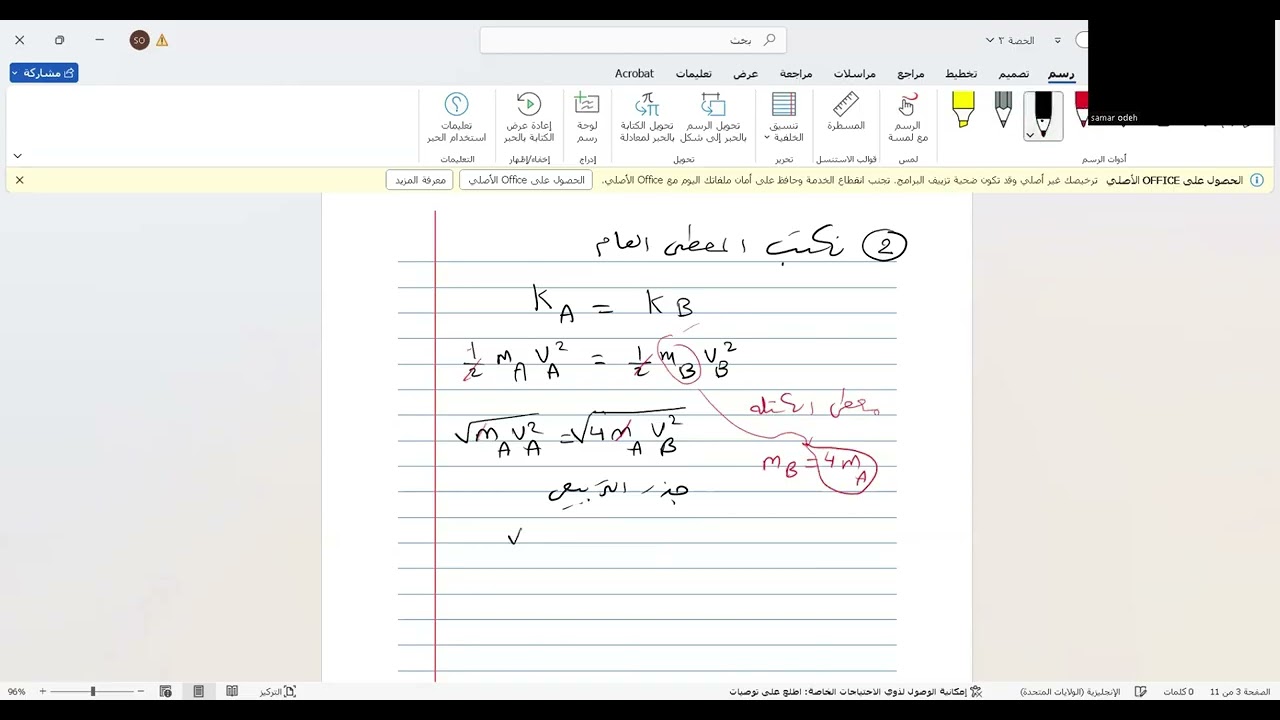 الحصة ٢
بحث
SO
samar odeh
رسم
تصميم
تخطيط
مراجع
مراسلات
مراجعة
عرض
تعليمات
Acrobat
مشاركة
الرسم
مع لمسة
المسطرة
تنسيق
الخلفية
تحويل الرسم
بالحبر إلى شكل
تحويل الكتابة
بالحبر لمعادلة
لوحة
رسم
إعادة عرض
الكتابة بالحبر
تعليمات
استخدام الحبر
أدوات الرسم
لمس
قوالب الاستنسل
تحرير
تحويل
إدراج
إخفاء/إظهار
التعليمات
الحصول على OFFICE الأصلي ترخيصك غير أصلي وقد تكون ضحية تزييف البرامج. تجنب انقطاع الخدمة وحافظ على أمان ملفاتك اليوم مع Office الأصلي.
الحصول على Office الأصلي
معرفة المزيد
② نكتب المعطى العام
K_A = K_B
1/2 m_A V_A² = 1/2 m_B V_B²
معطى الكتلة
√(m_A V_A²) = √(4 m_A V_B²)
m_B = 4 m_A
جذر التربيعي
V
الصفحة 3 من 11
0 كلمات
الإنجليزية (الولايات المتحدة)
إمكانية الوصول لذوي الاحتياجات الخاصة: اطلع على توصيات
التركيز
96%